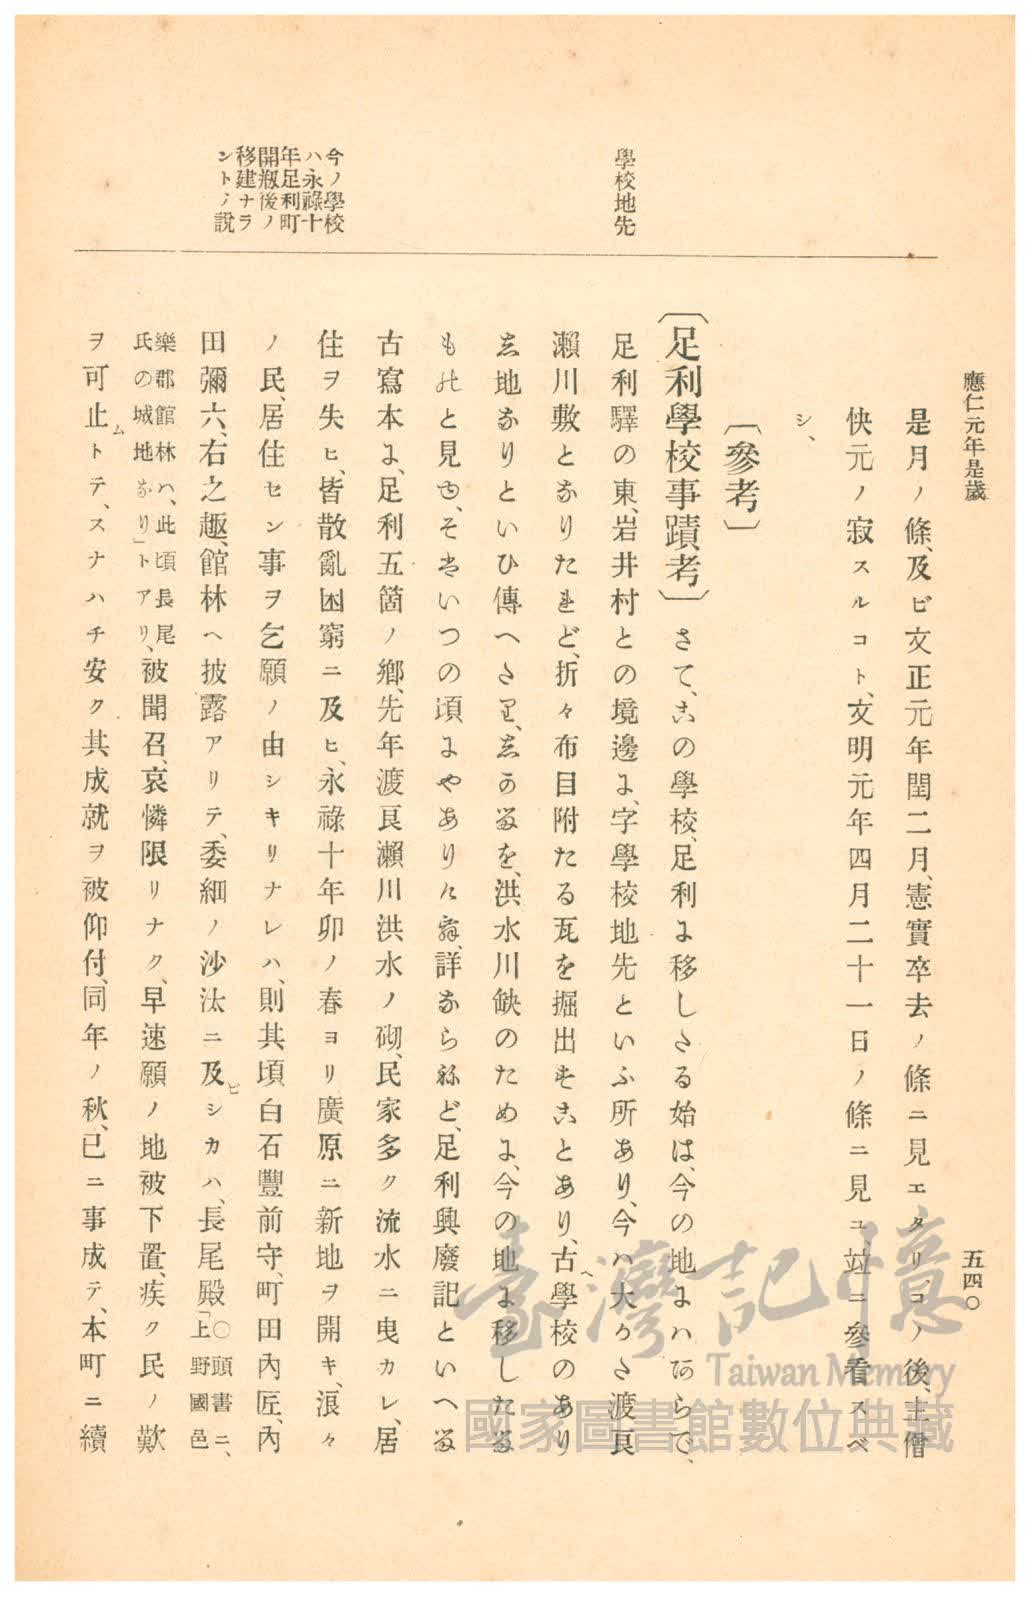 應仁元年是歲
五四〇
學校地先
今ノ學校
ハ永祿十
年足利町
開瓶後ノ
移建ナラ
ントノ說
是月ノ條、及ビ文正元年閏二月、憲實卒去ノ條ニ見エタリ、コノ後、主僧
快元ノ寂スルコト、文明元年四月二十一日ノ條ニ見ユ、竝ニ參看スベ
シ、
〔參考〕
〔足利學校事蹟考〕 さて、この學校、足利に移したる始は、今の地にハあらで、
足利驛の東、岩井村との境邊に、字學校地先といふ所あり、今ハ大かた渡良
瀨川敷となりたれど、折々布目附たる瓦を掘出すことあり、古へ學校のあり
し地なりといひ傳へたり、しかるを、洪水川缺のために、今の地に移したる
ものと見ゆ、そはいつの頃にやありけむ、詳ならねど、足利興廢記といへる
古寫本に、足利五箇ノ鄕、先年渡良瀨川洪水ノ砌、民家多ク流水ニ曳カレ、居
住ヲ失ヒ、皆散亂困窮ニ及ヒ、永祿十年卯ノ春ヨリ廣原ニ新地ヲ開キ、浪々
ノ民、居住セン事ヲ乞願ノ由シキリナレハ、則其頃白石豐前守、町田內匠、內
田彌六、右之趣、館林ヘ披露アリテ、委細ノ沙汰ニ及ビシカハ、長尾殿「〇頭書ニ、上野國邑
樂郡館林ハ、此頃長尾氏の城地なり」トアリ、被聞召、哀憐限リナク、早速願ノ地被下置、疾ク民ノ歎
ヲ可止ムトテ、スナハチ安ク其成就ヲ被仰付、同年ノ秋、已ニ事成テ、本町ニ續
臺灣記憶
Taiwan Memory
國家圖書館數位典藏